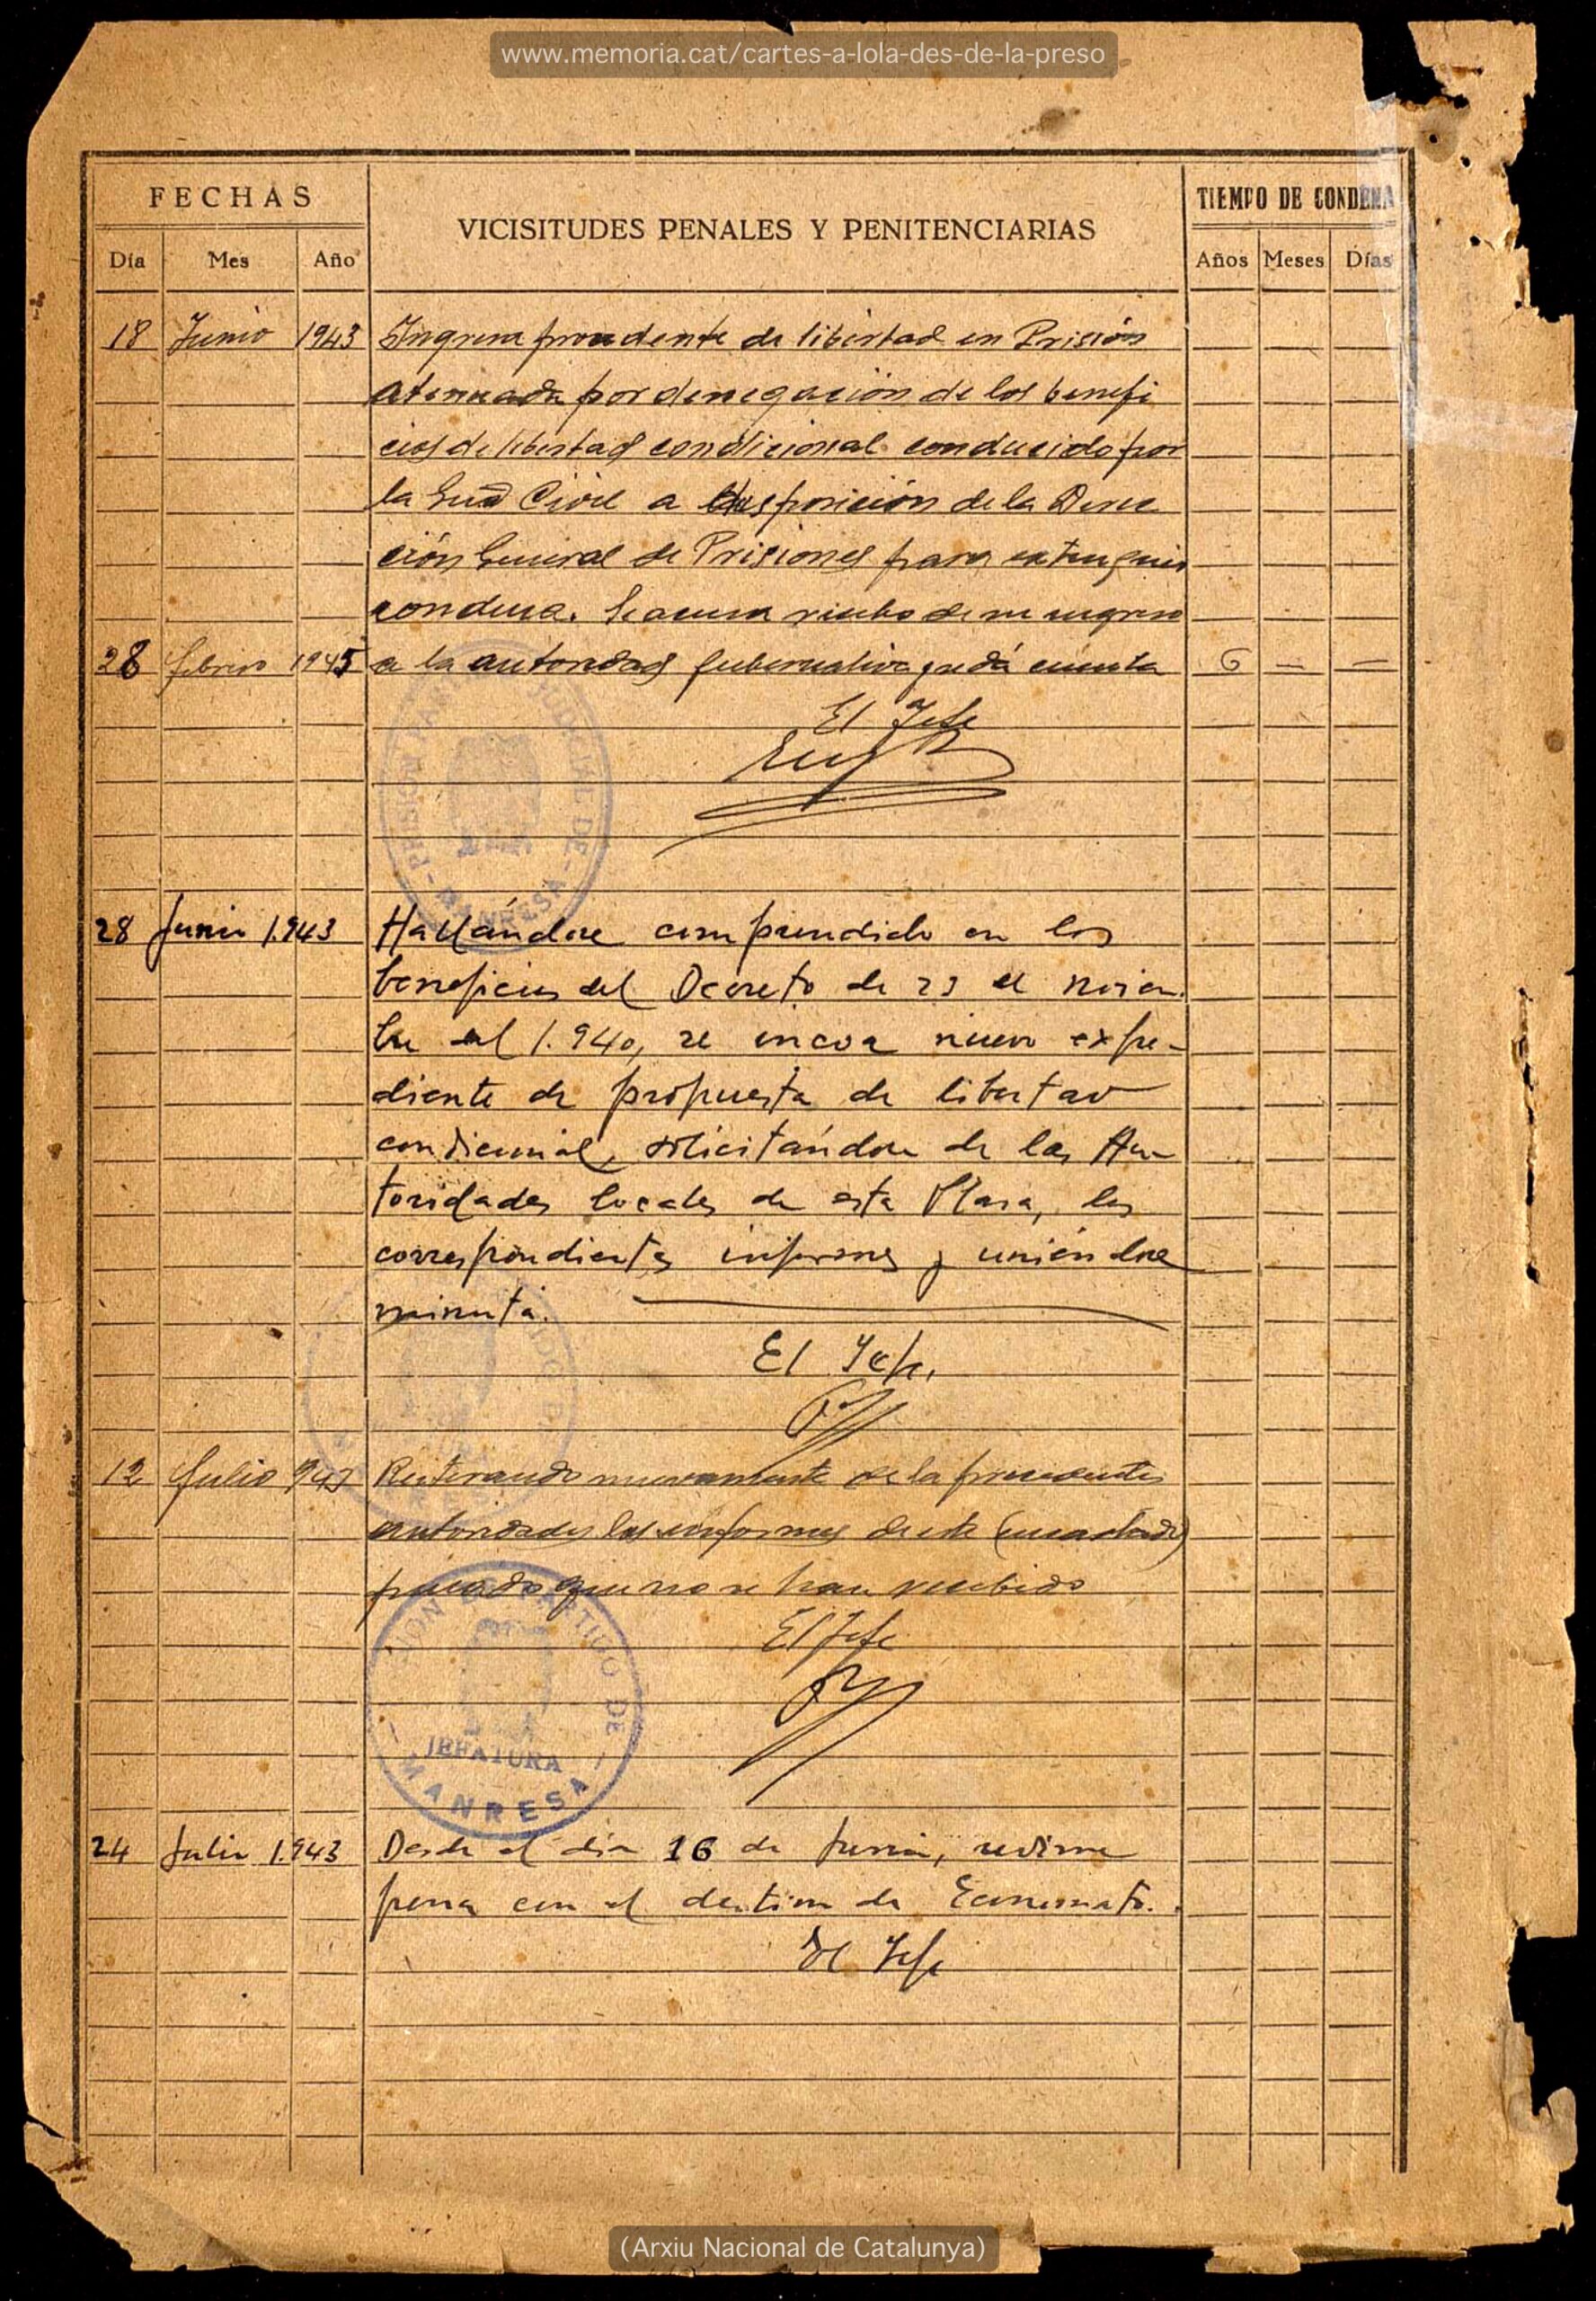 www.memoria.cat/cartes-a-lola-des-de-la-preso
FECHAS
VICISITUDES PENALES Y PENITENCIARIAS
TIEMPO DE CONDENA
Día Mes Año
Años Meses Días
18 Junio 1943 Ingresa procedente de libertad en Prisión
atenuada por denegación de los benefi
cios de libertad condicional conducido por
la Civil a disposición de la Direc
ción General de Prisiones para extinguir
condena. Se acusa recibo de su ingreso
28 febrero 1945 a la autoridad gubernativa que dá cuenta 6 — —
El Jefe
PRISION PARTIDO JUDICIAL DE - MANRESA -
28 Junio 1.943 Hallándose comprendido en los
beneficios del Decreto de 23 de noviem-
bre del 1.940, se incoa nuevo expe-
diente de propuesta de libertad
condicional, solicitándose de las Au-
toridades locales de esta Plaza, los
correspondientes informes y uniéndose
minuta.
El Jefe.
12 Julio 943 Reiterando nuevamente de la precedentes
autoridades los informes de este encartado
que no se han recibido
El Jefe
PARTIDO DE
JEFATURA
- MANRESA -
24 Julio 1.943 Desde el día 16 de Junio, redime
pena con el destino de Economato.
El Jefe
(Arxiu Nacional de Catalunya)